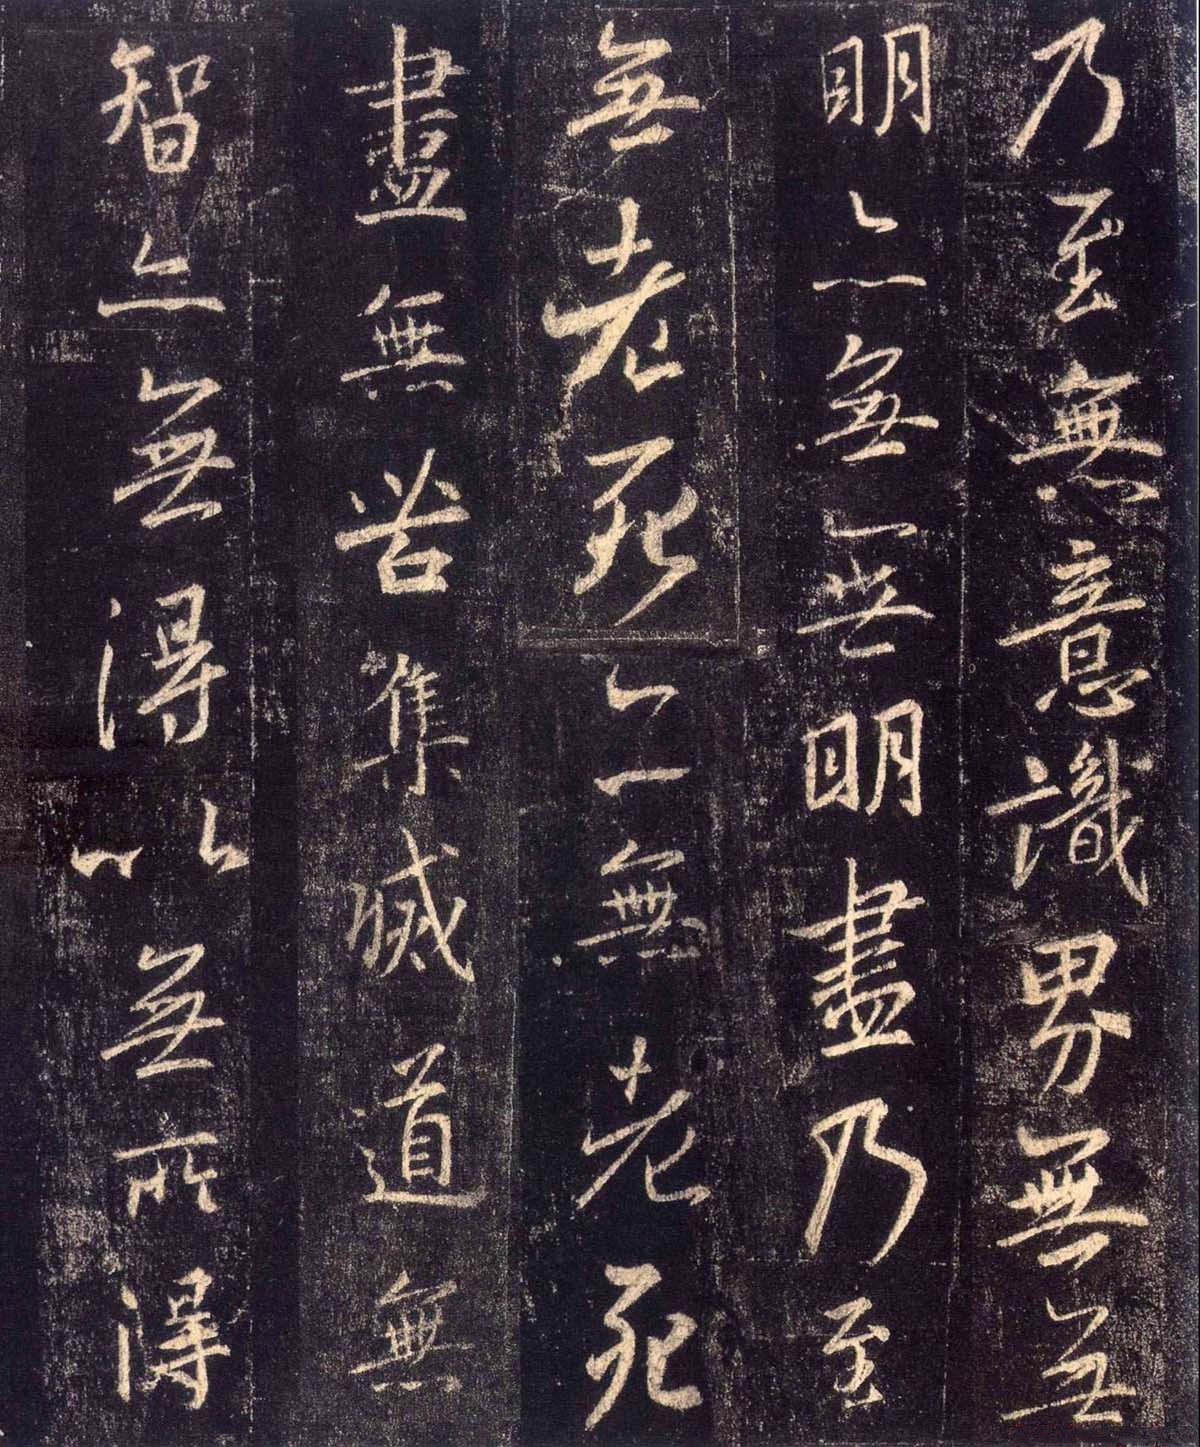 乃至無意識界無無
明亦無無明盡乃至
無老死亦無老死
盡無苦集滅道無
智亦無得以無所得